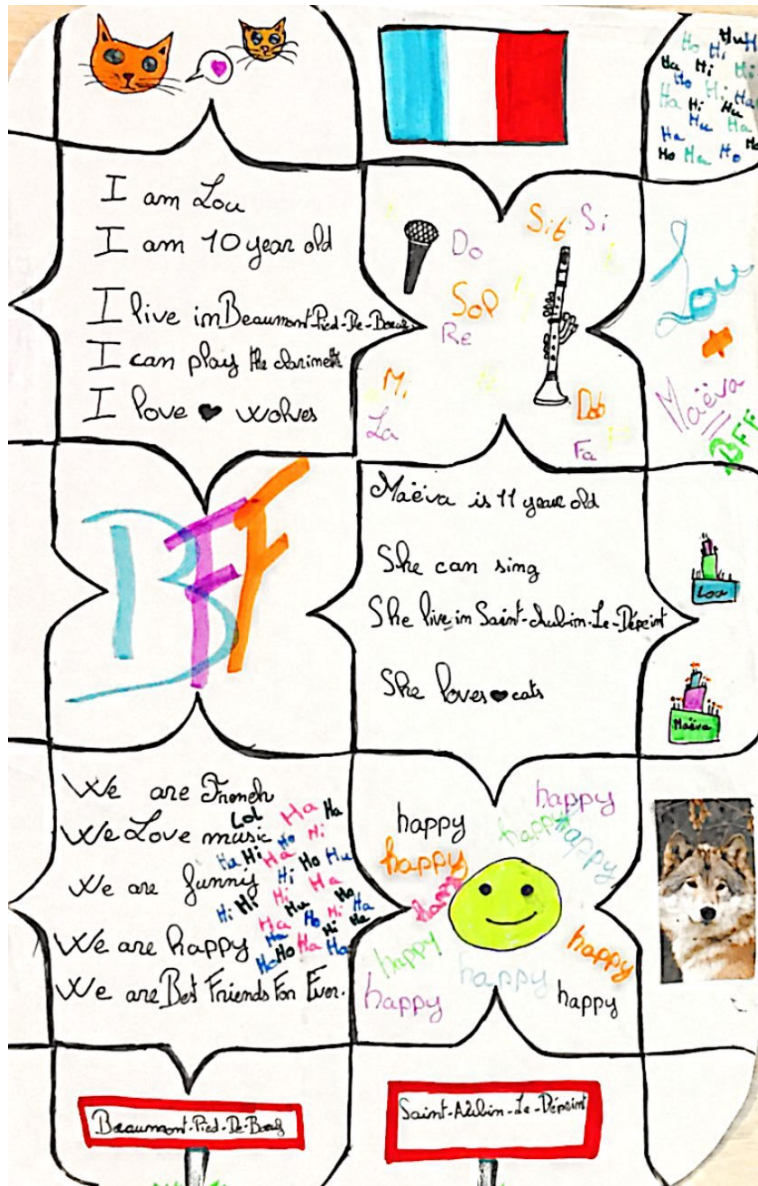 Hu
Ho Hi H
Ha Hi Hi
Ho Hi Ha
Ha Hi Hu
Hu Ha
Ha
Ho Ha Ho
I am Lou
I am 10 year old
I live in Beaumont-Pied-De-Boeuf
I can play the clarinette
I love wolves
Sib Si
Do
Sol
Re
Mi
La
Dob
Fa
Lou
+
Maëva
BFF
BFF
Maëva is 11 year old
She can sing
She live in Saint-Aubin-Le-Dépeint
She loves cats
Lou
Maëva
We are French
We Love music
We are funny
We are happy
We are Best Friends For Ever.
Lol Ha Ha
Ho Hi
Ha Hi Ha
Hi Ho Hu
Hi Hi Hi Ha
Hu Ho
Ha Ho Hi Ha
Ha Hi Ha
Ho Ho Ha Ha
happy
happy
happy
happy
happy
happy
happy
happy
happy
happy
happy
Beaumont-Pied-De-Boeuf
Saint-Aubin-Le-Dépeint